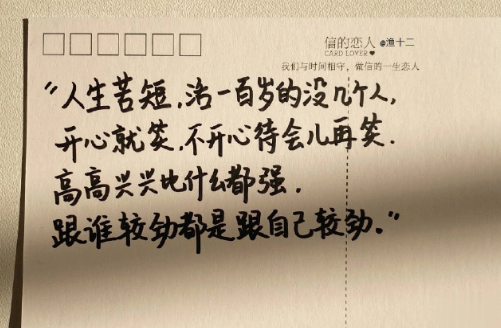 信的恋人 @渔十二
CARD LOVER♥
我们与时间相守，做信的一生恋人
“人生苦短,活一百岁的没几个人,
开心就笑,不开心待会儿再笑.
高高兴兴比什么都强.
跟谁较劲都是跟自己较劲.”